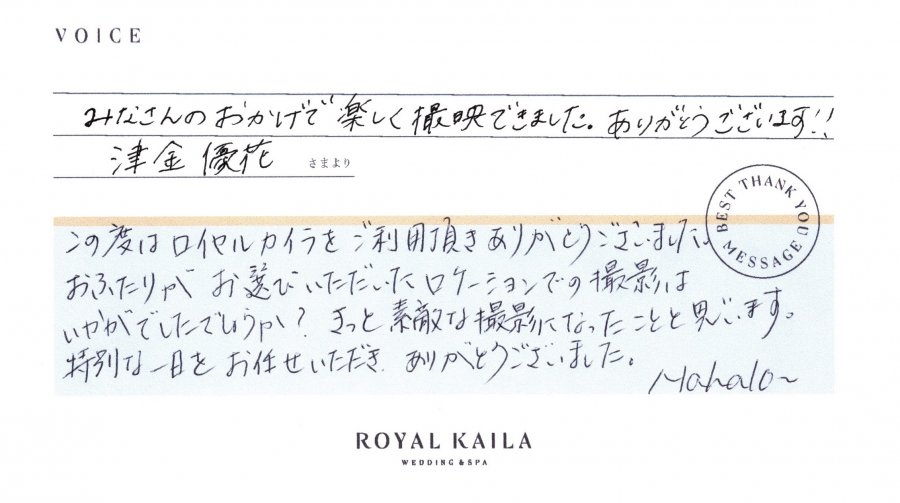 VOICE
みなさんのおかげで楽しく撮映できました。ありがとうございます!!
津金優花 さまより
BEST THANK YOU MESSAGE
この度はロイヤルカイラをご利用頂きありがとうございました。
おふたりが お選びいただいたロケーションでの撮影は
いかがでしたでしょうか? きっと素敵な撮影になったことと思います。
特別な一日をお任せいただき ありがとうございました。
Mahalo~
ROYAL KAILA
WEDDING & SPA